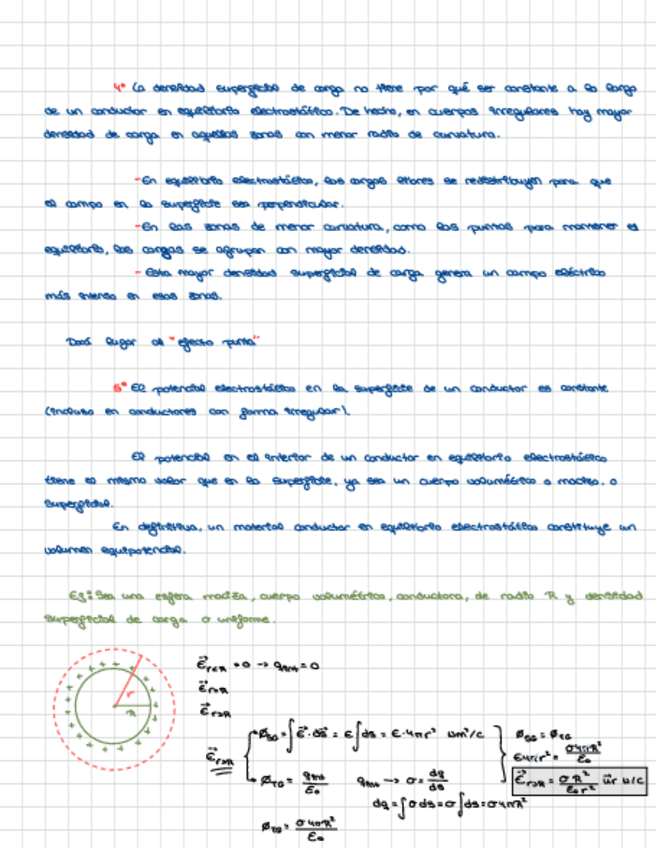 4º La densidad superficial de carga no tiene por qué ser constante a lo largo
de un conductor en equilibrio electrostático. De hecho, en cuerpos irregulares hay mayor
densidad de carga en aquellas zonas con menor radio de curvatura.
-En equilibrio electrostático, las cargas libres se redistribuyen para que
el campo en la superficie sea perpendicular.
-En las zonas de menor curvatura, como las puntas para mantener el
equilibrio, las cargas se agrupan con mayor densidad.
- Esta mayor densidad superficial de carga genera un campo eléctrico
más intenso en esas zonas.
Dará lugar al "efecto punta"
5º El potencial electrostático en la superficie de un conductor es constante
(incluso en conductores con forma irregular).
El potencial en el interior de un conductor en equilibrio electrostático
tiene el mismo valor que en la superficie, ya sea un cuerpo volumétrico o macizo, o
superficial.
En definitiva, un material conductor en equilibrio electrostático constituye un
volumen equipotencial.
Ej: Sea una esfera maciza, cuerpo volumétrico, conductora, de radio R y densidad
superficial de carga σ uniforme.
r
R
E⃗r<R = 0 -> qint = 0
E⃗r=R
E⃗r>R
E⃗r>R
ØSG = ∫E⃗·ds⃗ = E∫ds = E·4πr² Nm²/C
ØTG = qint/ε₀ qint -> σ = dq/ds
dq = ∫σds = σ∫ds = σ4πR²
ØTG = σ4πR²/ε₀
ØSG = ØTG
E4πr² = σ4πR²/ε₀
E⃗r>R = σR²/ε₀r² u⃗r N/C